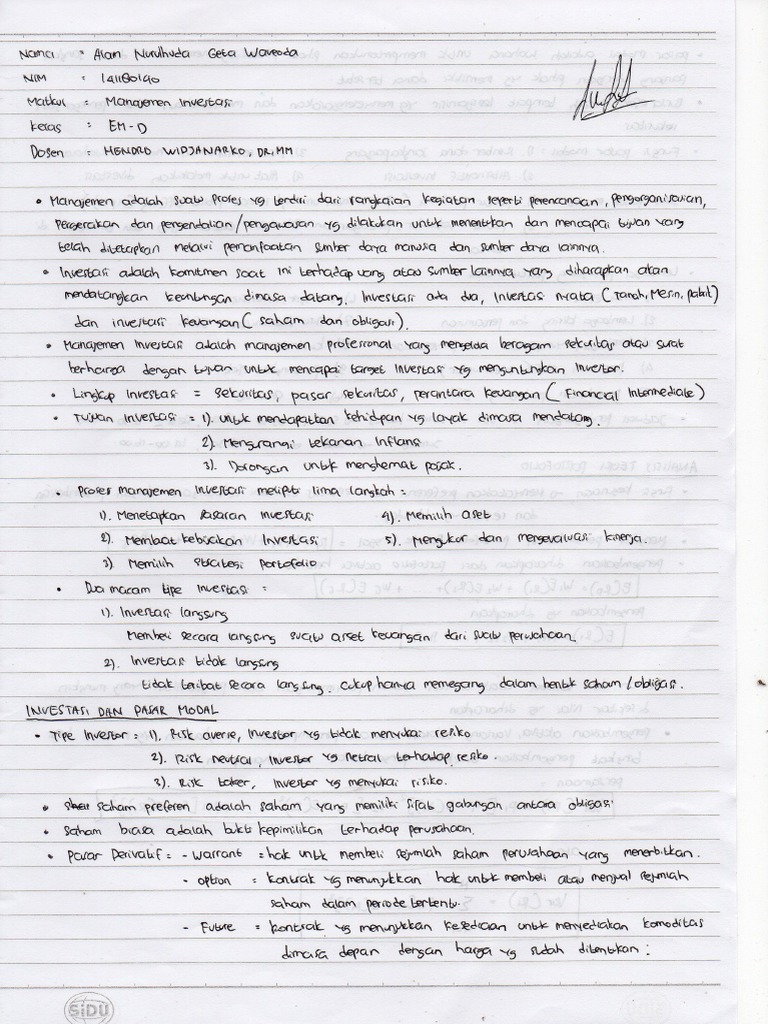 Nama : Alam Nurulhuda Geta Waveoda
NIM : 141180140
Matkul : Manajemen Investasi
Kelas : EM-D
Dosen : HENDRO WIDJANARKO, DR, MM
• Manajemen adalah suatu proses yg terdiri dari rangkaian kegiatan seperti perencanaan, pengorganisasian,
Pergerakan dan pengendalian/pengawasan yg dilakukan untuk menentukan dan mencapai tujuan yang
telah ditetapkan melalui pemanfaatan sumber daya manusia dan sumber daya lainnya.
• Investasi adalah komitmen saat ini terhadap uang atau sumber lainnya yang diharapkan akan
mendatangkan keuntungan dimasa datang. Investasi ada dua, Investasi nyata (Tanah, Mesin, Pabrik)
dan investasi keuangan (saham dan obligasi).
• Manajemen Investasi adalah manajemen profesional yang mengelola beragam sekuritas atau surat
berharga dengan tujuan untuk mencapai target investasi yg menguntungkan Investor.
• Lingkup Investasi = sekuritas, pasar sekuritas, perantara keuangan (Financial Intermediate)
• Tujuan Investasi = 1). untuk mendapatkan kehidupan yg layak dimasa mendatang.
2). Mengurangi tekanan Inflasi
3). Dorongan untuk menghemat pajak.
• Proses manajemen Investasi meliputi lima langkah :
1). Menetapkan sasaran investasi 4). Memilih aset
2). Membuat kebijakan Investasi 5). Mengukur dan mengevaluasi kinerja.
3). Memilih strategi portofolio
• Dua macam tipe Investasi :
1). Investasi langsung
Membeli secara langsung suatu asset keuangan dari suatu perusahaan.
2). Investasi tidak langsung
tidak terlibat secara langsung. cukup hanya memegang dalam bentuk saham/obligasi.
INVESTASI DAN PASAR MODAL
• Tipe Investor : 1). Risk averse, Investor yg tidak menyukai resiko
2). Risk neutral, Investor yg netral terhadap resiko.
3). Risk taker, Investor yg menyukai risiko.
• saham preferen adalah saham yang memiliki sifat gabungan antara obligasi
• Saham biasa adalah bukti kepimilikan terhadap perusahaan.
• Pasar Derivatif = - Warrant = hak untuk membeli sejumlah saham perusahaan yang menerbitkan.
- option = kontrak yg menunjukkan hak untuk membeli atau menjual sejumlah
saham dalam periode tertentu.
- Future = kontrak yg menunjukkan kesediaan untuk menyediakan komoditas
dimasa depan dengan harga yg sudah ditentukan.
SiDU